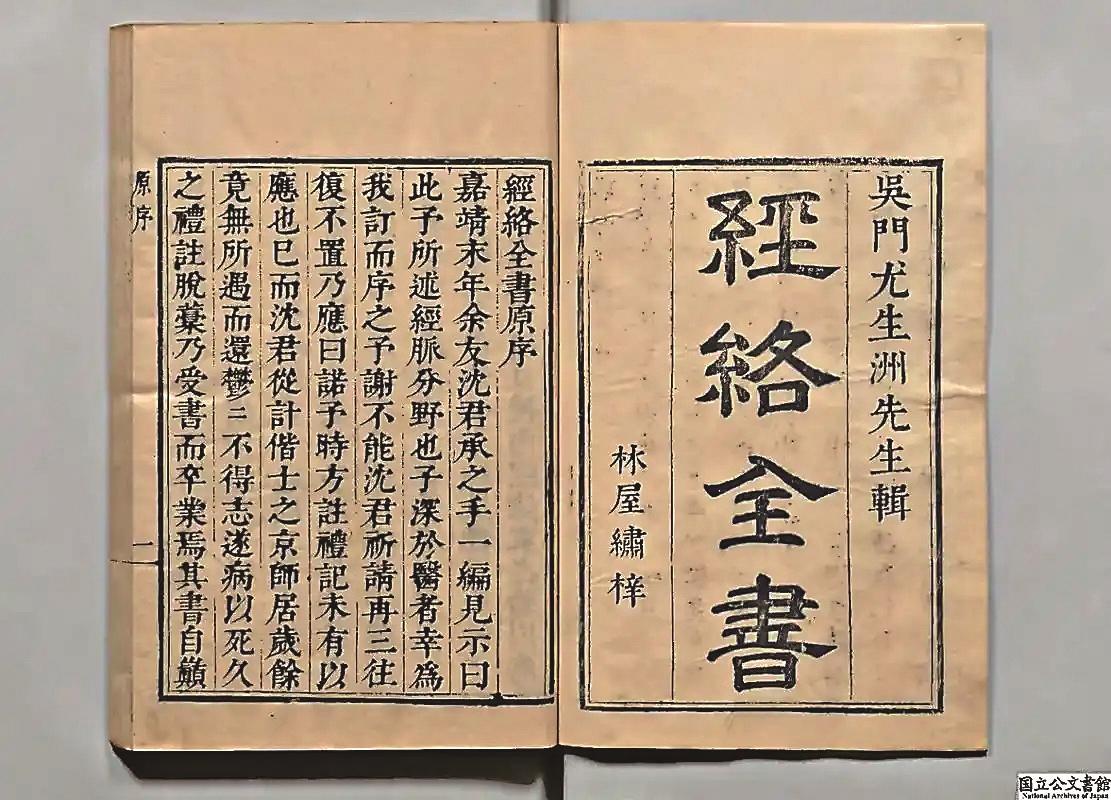 吳門尤生洲先生輯
經絡全書
林屋繡梓
經絡全書原序
嘉靖末年余友沈君承之手一編見示曰
此予所述經脈分野也子深於醫者幸為
我訂而序之予謝不能沈君祈請再三往
復不置乃應曰諾予時方註禮記未有以
應也巳而沈君從計偕士之京師居歲餘
竟無所遇而還鬱〻不得志遂病以死久
之禮註脫藁乃受書而卒業焉其書自巔
原序
一
国立公文書館
National Archives of Japan